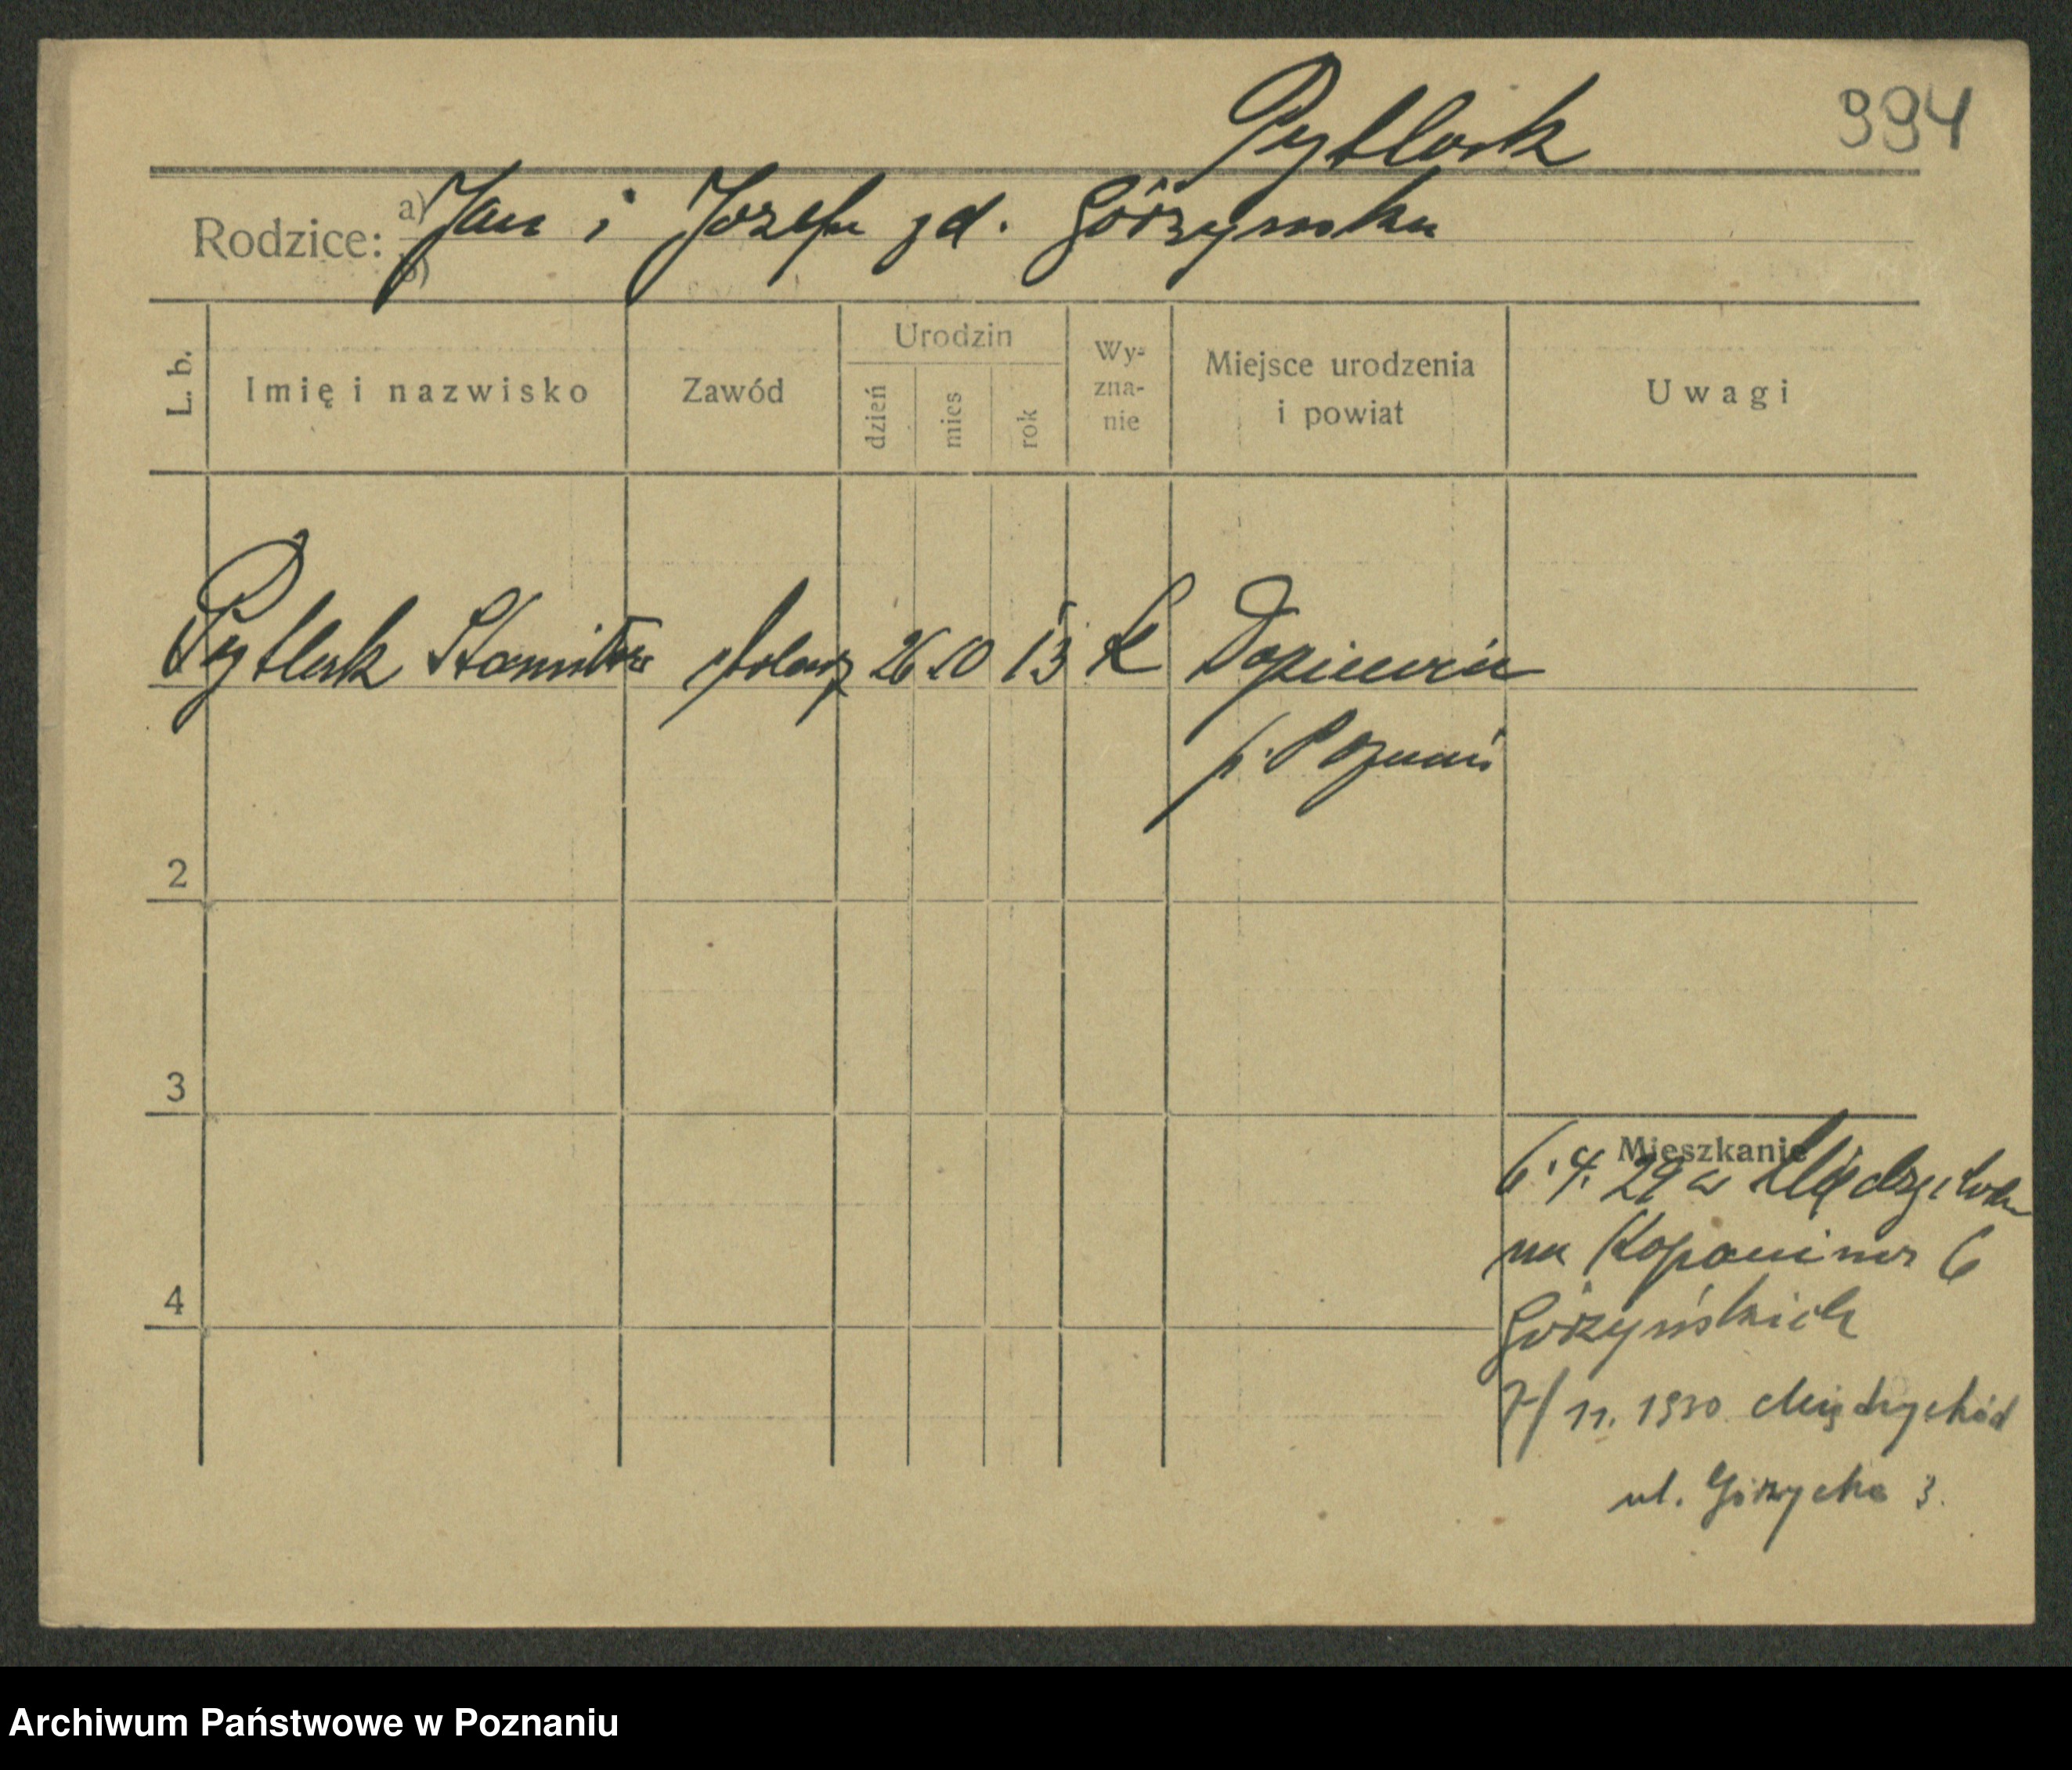 994
Pytlak
Rodzice: a) Jan i Józefa zd. Górzyńska
b)
L. b. Imię i nazwisko Zawód Urodzin dzień mies rok Wy-zna-nie Miejsce urodzenia i powiat Uwagi
Pytlak Stanisław stolarz 26 10 13 K Dopiewiec
p. Poznań
2
3
4
Mieszkanie
6. 4. 29 w
na Kopaninie 6
Górzyńskich
7/11. 1930 Międzychód
ul. Górzycka 3.
Archiwum Państwowe w Poznaniu